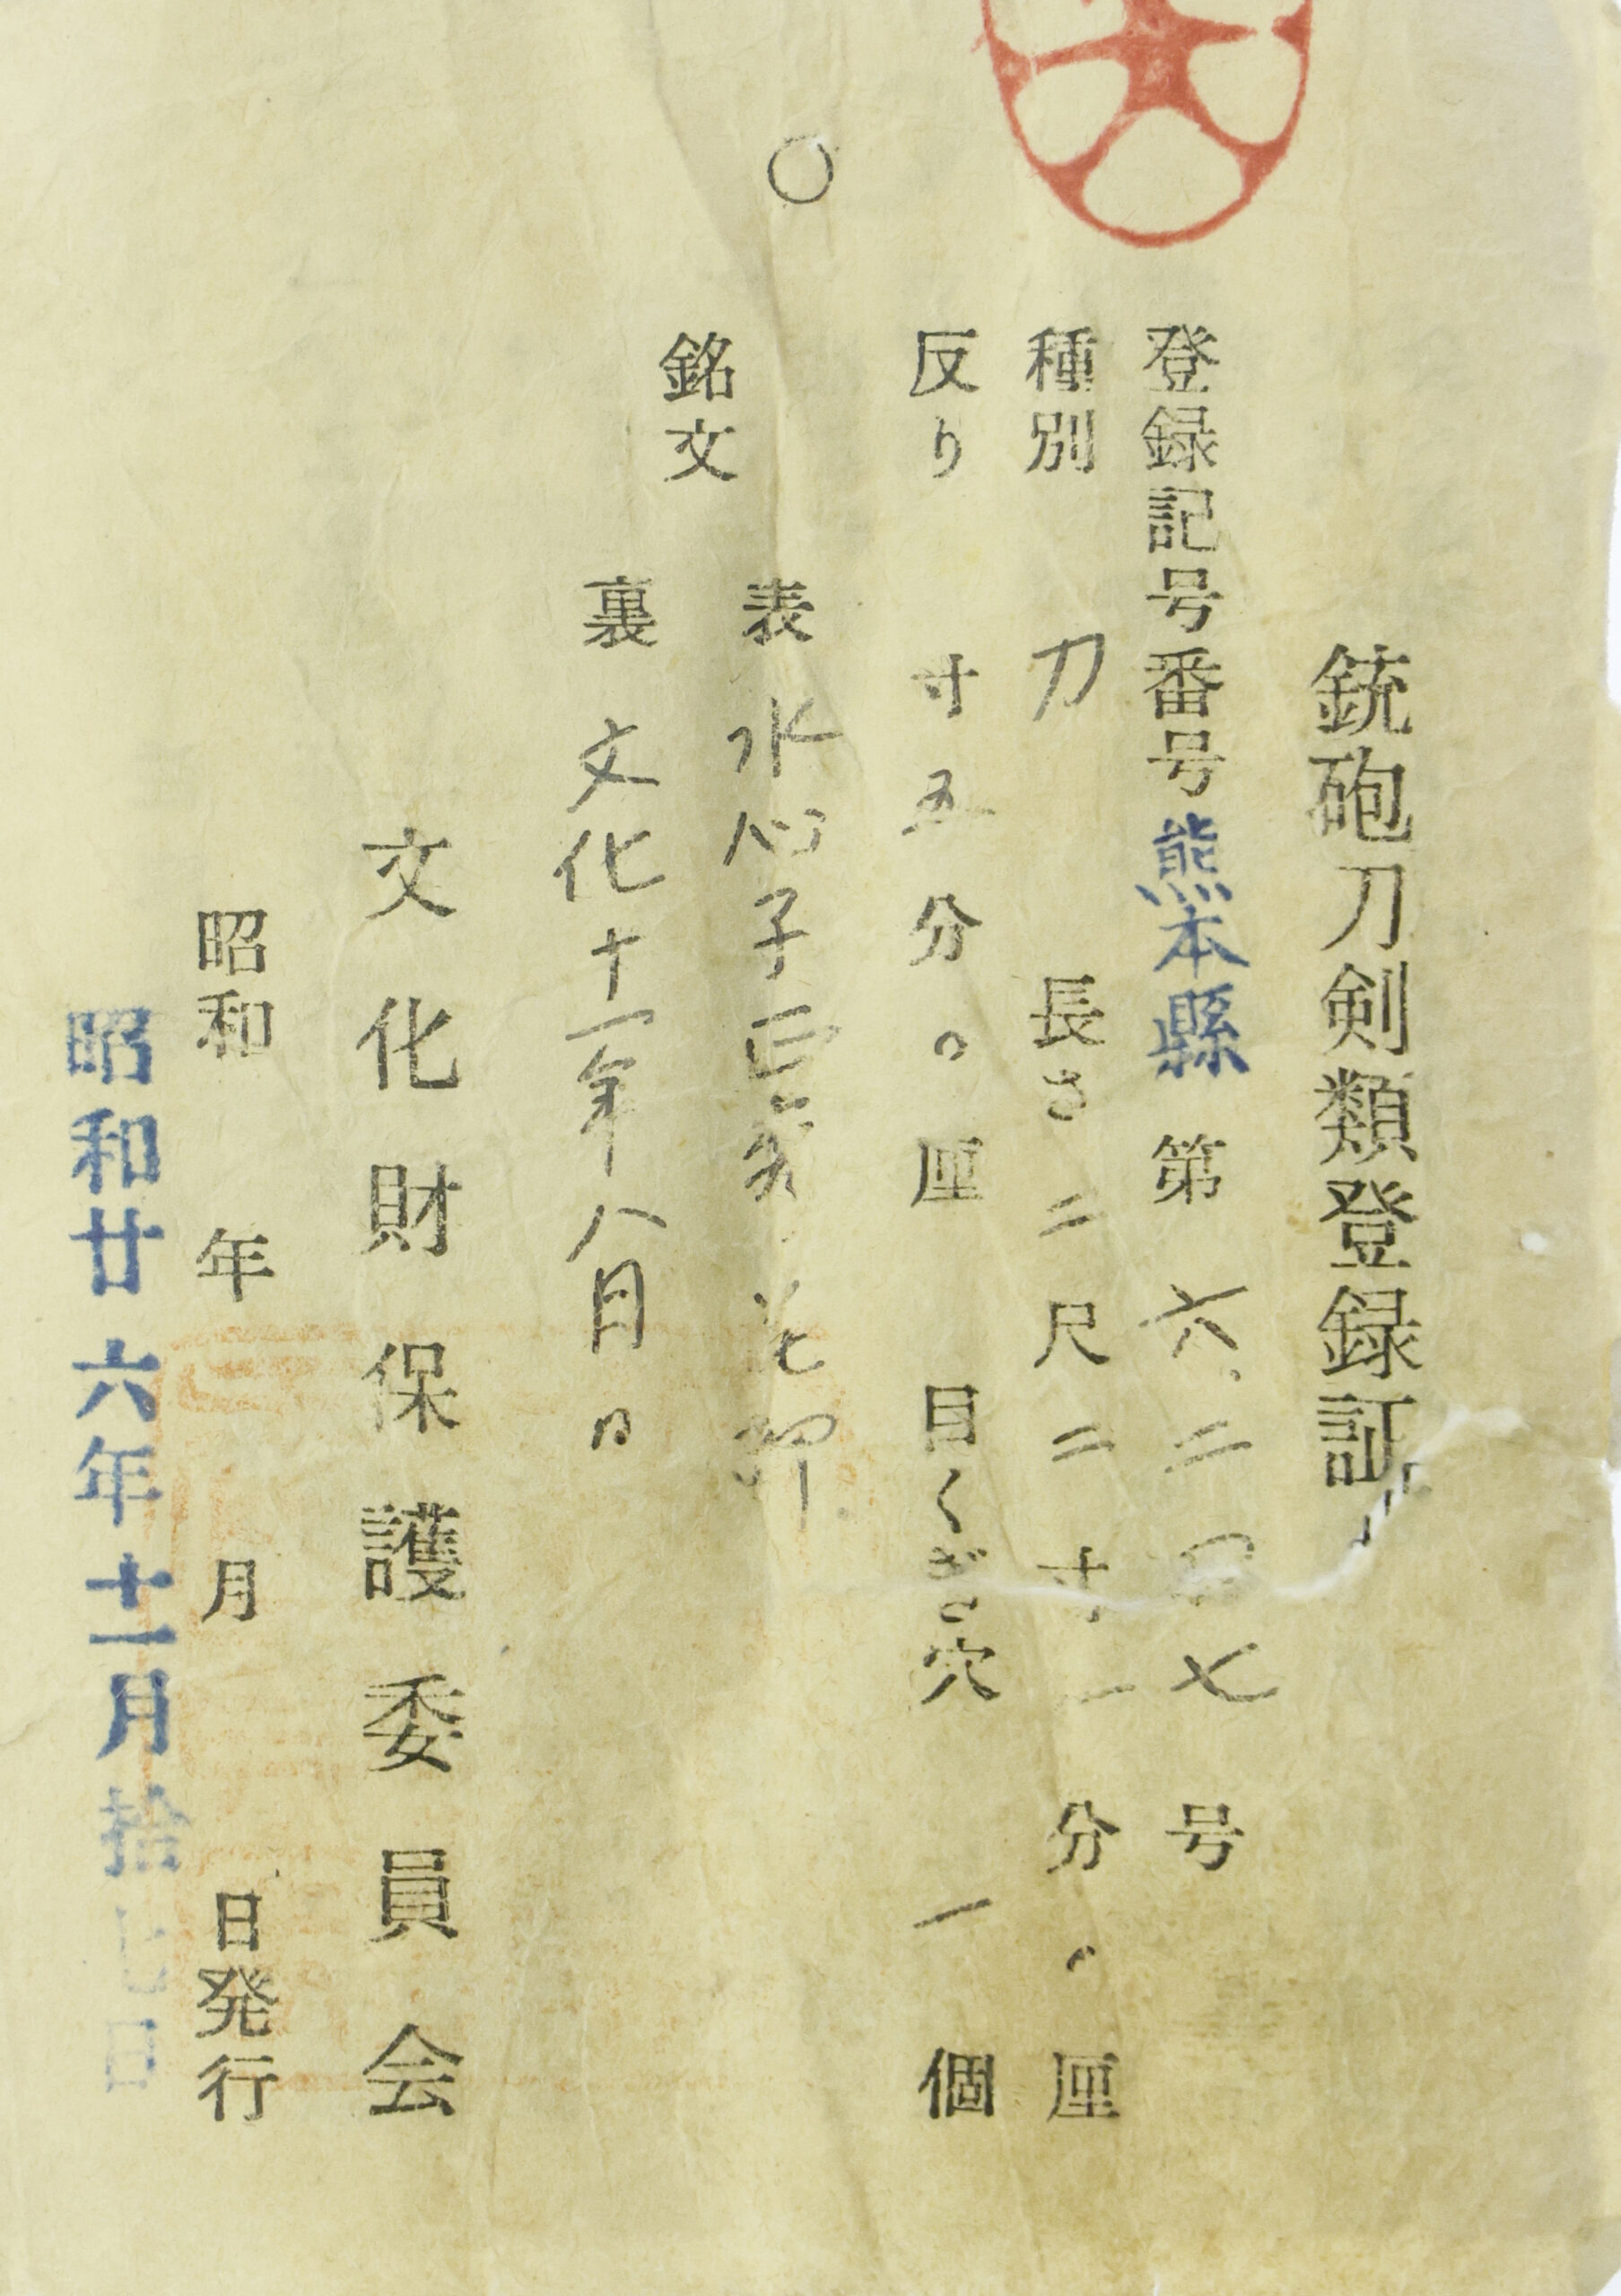 銃砲刀剣類登録証
登録記号番号熊本縣 第 六二〇七 号
種別 刀 長さ 二尺二寸一分〇厘
反り 寸五分〇厘 目くぎ穴 一個
銘文
表 水心子正秀 花押
裏 文化十一年八月日
文化財保護委員会
昭和 年 月 日発行
昭和廿六年十二月拾七日